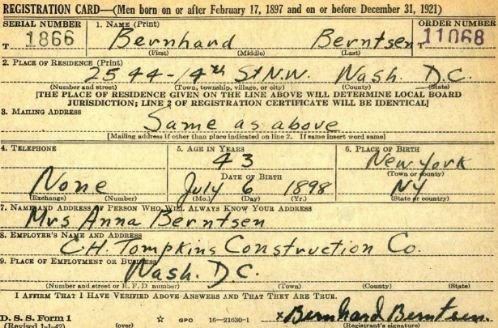 REGISTRATION CARD—(Men born on or after February 17, 1897 and on or before December 31, 1921)
SERIAL NUMBER 1. NAME (Print) ORDER NUMBER
T 1866 Bernhard Berntsen T 11068
(First) (Middle) (Last)
2. PLACE OF RESIDENCE (Print)
2544-14th St N.W. Wash. D.C.
(Number and street) (Town, township, village, or city) (County) (State)
[THE PLACE OF RESIDENCE GIVEN ON THE LINE ABOVE WILL DETERMINE LOCAL BOARD
JURISDICTION; LINE 2 OF REGISTRATION CERTIFICATE WILL BE IDENTICAL]
3. MAILING ADDRESS
Same as above
[Mailing address if other than place indicated on line 2. If same insert word same]
4. TELEPHONE 5. AGE IN YEARS 6. PLACE OF BIRTH
43 New York
DATE OF BIRTH (Town or county)
None July 6 1898 NY
(Exchange) (Number) (Mo.) (Day) (Yr.) (State or country)
7. NAME AND ADDRESS OF PERSON WHO WILL ALWAYS KNOW YOUR ADDRESS
Mrs Anna Berntsen
8. EMPLOYER'S NAME AND ADDRESS
C.H. Tompkins Construction Co.
9. PLACE OF EMPLOYMENT OR BUSINESS
Wash. D.C.
(Number and street or R. F. D. number) (Town) (County) (State)
I AFFIRM THAT I HAVE VERIFIED ABOVE ANSWERS AND THAT THEY ARE TRUE.
D. S. S. Form 1 GPO 16—21630-1 x Bernhard Berntsen
(Revised 1-1-42) (over) (Registrant's signature)